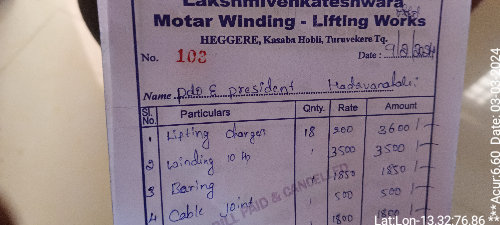 Lakshmivenkateshwara
Motar Winding - Lifting Works
HEGGERE, Kasaba Hobli, Turuvekere Tq.
No. 103 Date : 9/2/2024
Name pdo & president
Sl. No. Particulars Qnty. Rate Amount
1 Lifting Charger 18 200 3600/-
2 Winding 10 Hp 1 3500 3500/-
3 Baring 1 1850 1850/-
4 Cable Joint 1 500 500/-
1800 1800/-
BILL PAID & CANCELLED
Lat:Lon-13.32:76.86
**Acur:6.60 Date: 13-03-2024